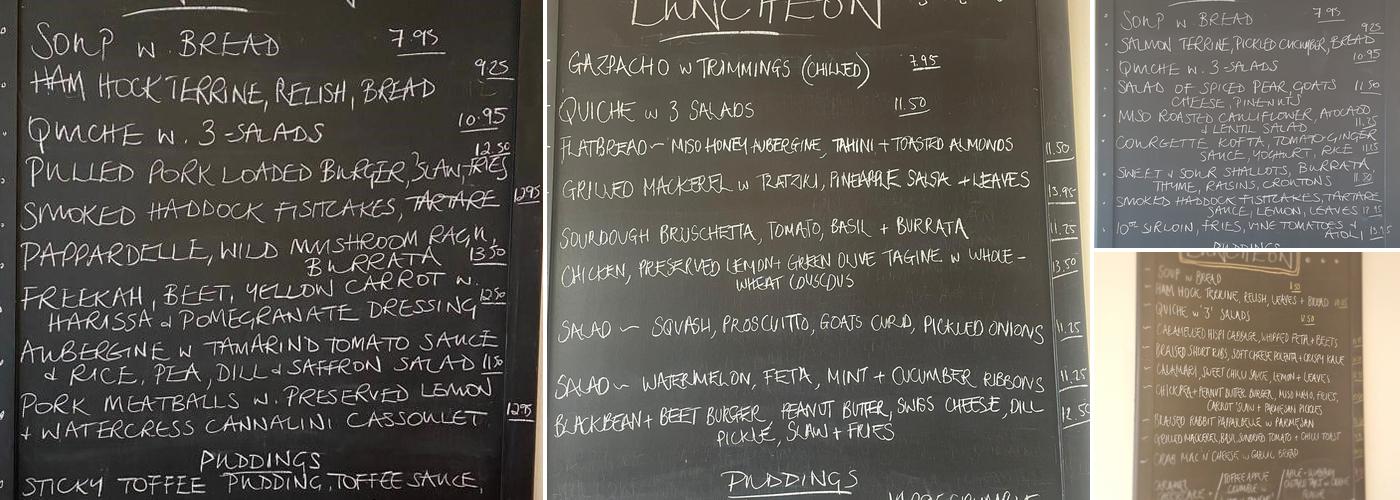 SOUP W. BREAD 7.95
HAM HOCK TERRINE, RELISH, BREAD 9.25
QUICHE W. 3-SALADS 10.95
PULLED PORK LOADED BURGER, SLAW, FRIES 12.50
SMOKED HADDOCK FISHCAKES, TARTARE 12.95
PAPPARDELLE, WILD MUSHROOM RAGU,
BURRATA 13.50
FREEKAH, BEET, YELLOW CARROT W.
HARISSA & POMEGRANATE DRESSING 12.50
AUBERGINE W TAMARIND TOMATO SAUCE
& RICE, PEA, DILL & SAFFRON SALAD 11.50
PORK MEATBALLS W. PRESERVED LEMON
+ WATERCRESS CANNALINI CASSOULET 12.95
PUDDINGS
STICKY TOFFEE PUDDING, TOFFEE SAUCE,
LUNCHEON
GAZPACHO W TRIMMINGS (CHILLED) 7.95
QUICHE W 3 SALADS 11.50
FLATBREAD ~ MISO HONEY AUBERGINE, TAHINI + TOASTED ALMONDS 11.50
GRILLED MACKEREL W TZATZIKI, PINEAPPLE SALSA + LEAVES 13.95
SOURDOUGH BRUSCHETTA, TOMATO, BASIL + BURRATA 11.25
CHICKEN, PRESERVED LEMON + GREEN OLIVE TAGINE W WHOLE-
WHEAT COUSCOUS 13.50
SALAD ~ SQUASH, PROSCUITTO, GOATS CURD, PICKLED ONIONS 11.25
SALAD ~ WATERMELON, FETA, MINT + CUCUMBER RIBBONS 11.25
BLACKBEAN + BEET BURGER PEANUT BUTTER, SWISS CHEESE, DILL
PICKLE, SLAW + FRIES 12.50
PUDDINGS
SOUP W BREAD 7.95
SALMON TERRINE, PICKLED CUCUMBER, BREAD 9.25
QUICHE W. 3-SALADS 10.95
SALAD OF SPICED PEAR, GOATS
CHEESE, PINENUTS 11.50
MISO ROASTED CAULIFLOWER, AVOCADO
& LENTIL SALAD 11.25
COURGETTE KOFTA, TOMATO-GINGER
SAUCE, YOGHURT, RICE
SWEET & SOUR SHALLOTS, BURRATA
THYME, RAISINS, CROUTONS 11.50
SMOKED HADDOCK FISHCAKES, TARTARE
SAUCE, LEMON, LEAVES 12.95
10oz SIRLOIN, FRIES, VINE TOMATOES &
AIOLI
PUDDINGS
LUNCHEON
SOUP W BREAD
HAM HOCK TERRINE, RELISH, LEAVES + BREAD
QUICHE W '3' SALADS
CARAMELISED HISPI CABBAGE, WHIPPED FETA + BEETS
BRAISED SHORT RIBS, SOFT CHEESE POLENTA + CRISPY KALE
CALAMARI, SWEET CHILLI SAUCE, LEMON + LEAVES
CHICKPEA + PEANUT BUTTER BURGER, MISO MAYO, FRIES,
CARROT SLAW + PARMESAN PICKLES
BRAISED RABBIT PAPPARDELLE W PARMESAN
GRILLED MACKEREL, BASIL, SUNDRIED TOMATO + CHILLI TOAST
CRAB MAC 'N' CHEESE W GARLIC BREAD
TOFFEE APPLE
CRUMBLE